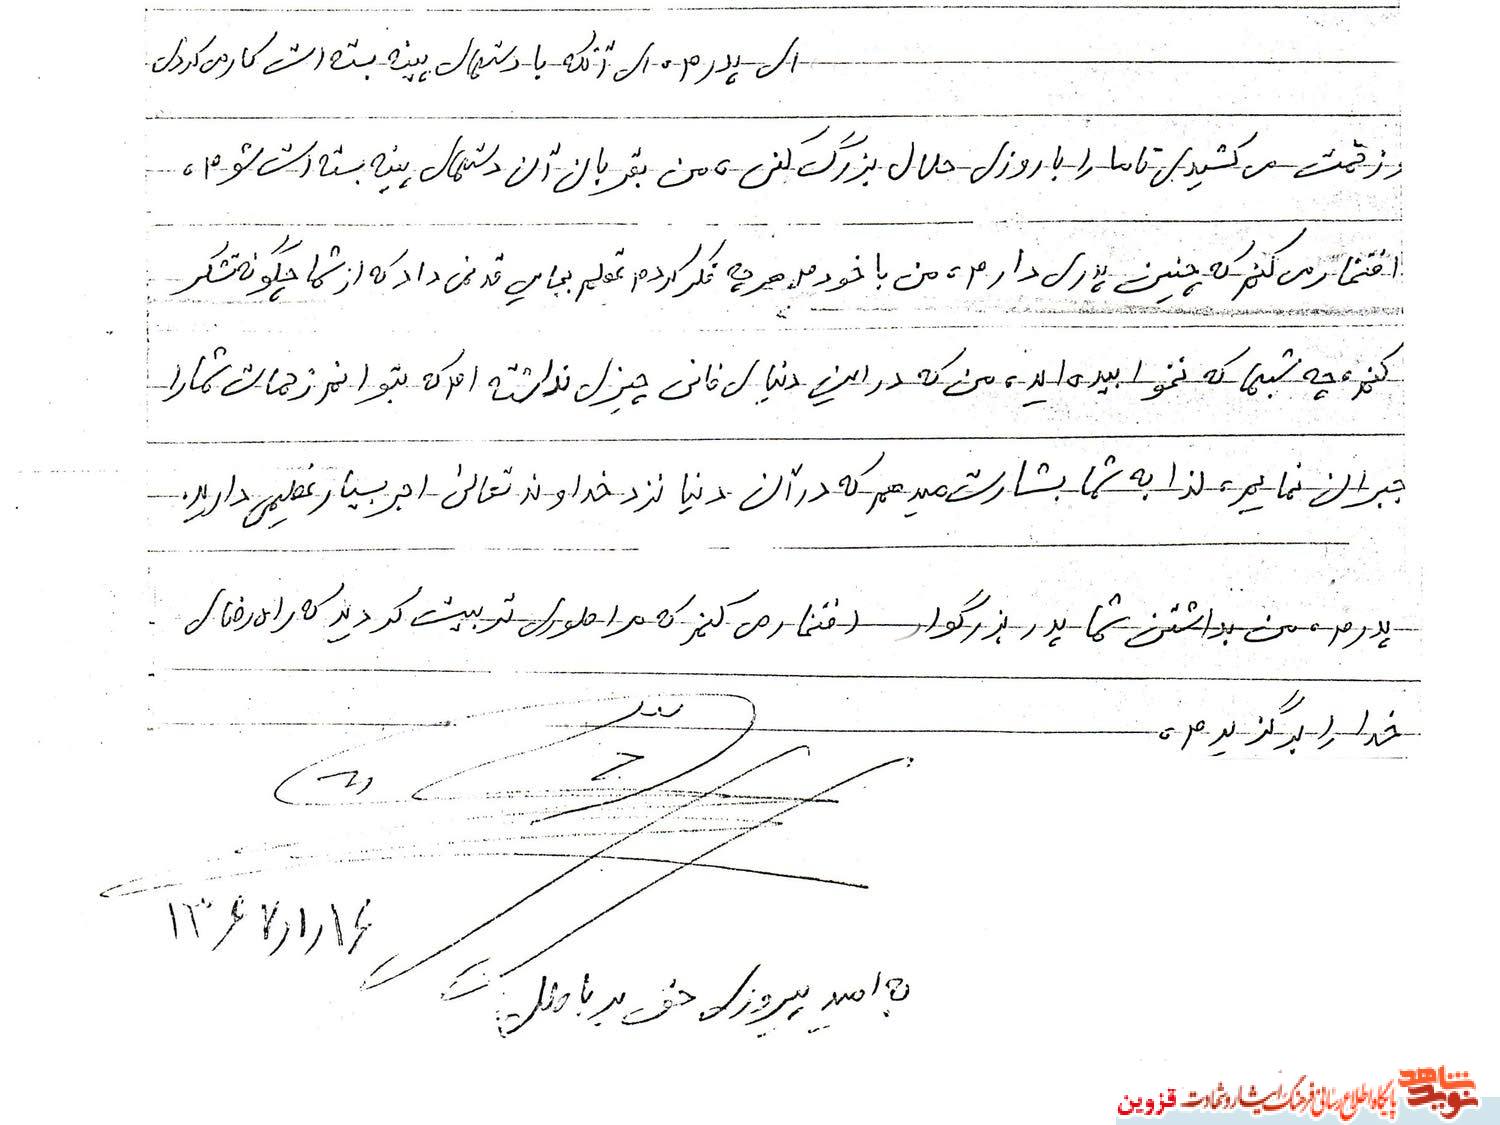 ای پدرم، ای آنکه با دستهای پینه بسته ات کار می کردی
و زحمت می کشیدی تا ما را با روزی حلال بزرگ کنی، من بقربان آن دستهای پینه بسته ات شوم،
افتخار می کنم که چنین پدری دارم، من با خودم هر چه فکر کردم عقلم بجایی قد نمی داد که از شما چگونه تشکر
کنم، چه شبها که نخوابیده اید، من که در این دنیای فانی چیزی نداشته ام که بتوانم زحمات شما را
جبران نمایم، لذا به شما بشارت میدهم که در آن دنیا نزد خداوند تعالی اجر بسیار عظیمی دارید.
پدرم، من بداشتن شما پدر بزرگوار افتخار می کنم که مرا طوری تربیت کردید که راه رضای
خدا را برگزیدم،
۱۳۶۷/۱/۱۶
به امید پیروزی حق بر باطل
نوید شاهد پایگاه اطلاع رسانی فرهنگ ایثار و شهادت قزوین